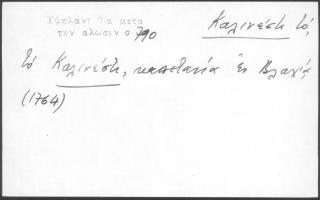 Ὑψηλαντ Τα μετα
την αλωσιν σ 790
Καλινέστι τό,
τό Καλινέστι, καπετανία ἐν Βλαχίᾳ
(1764)